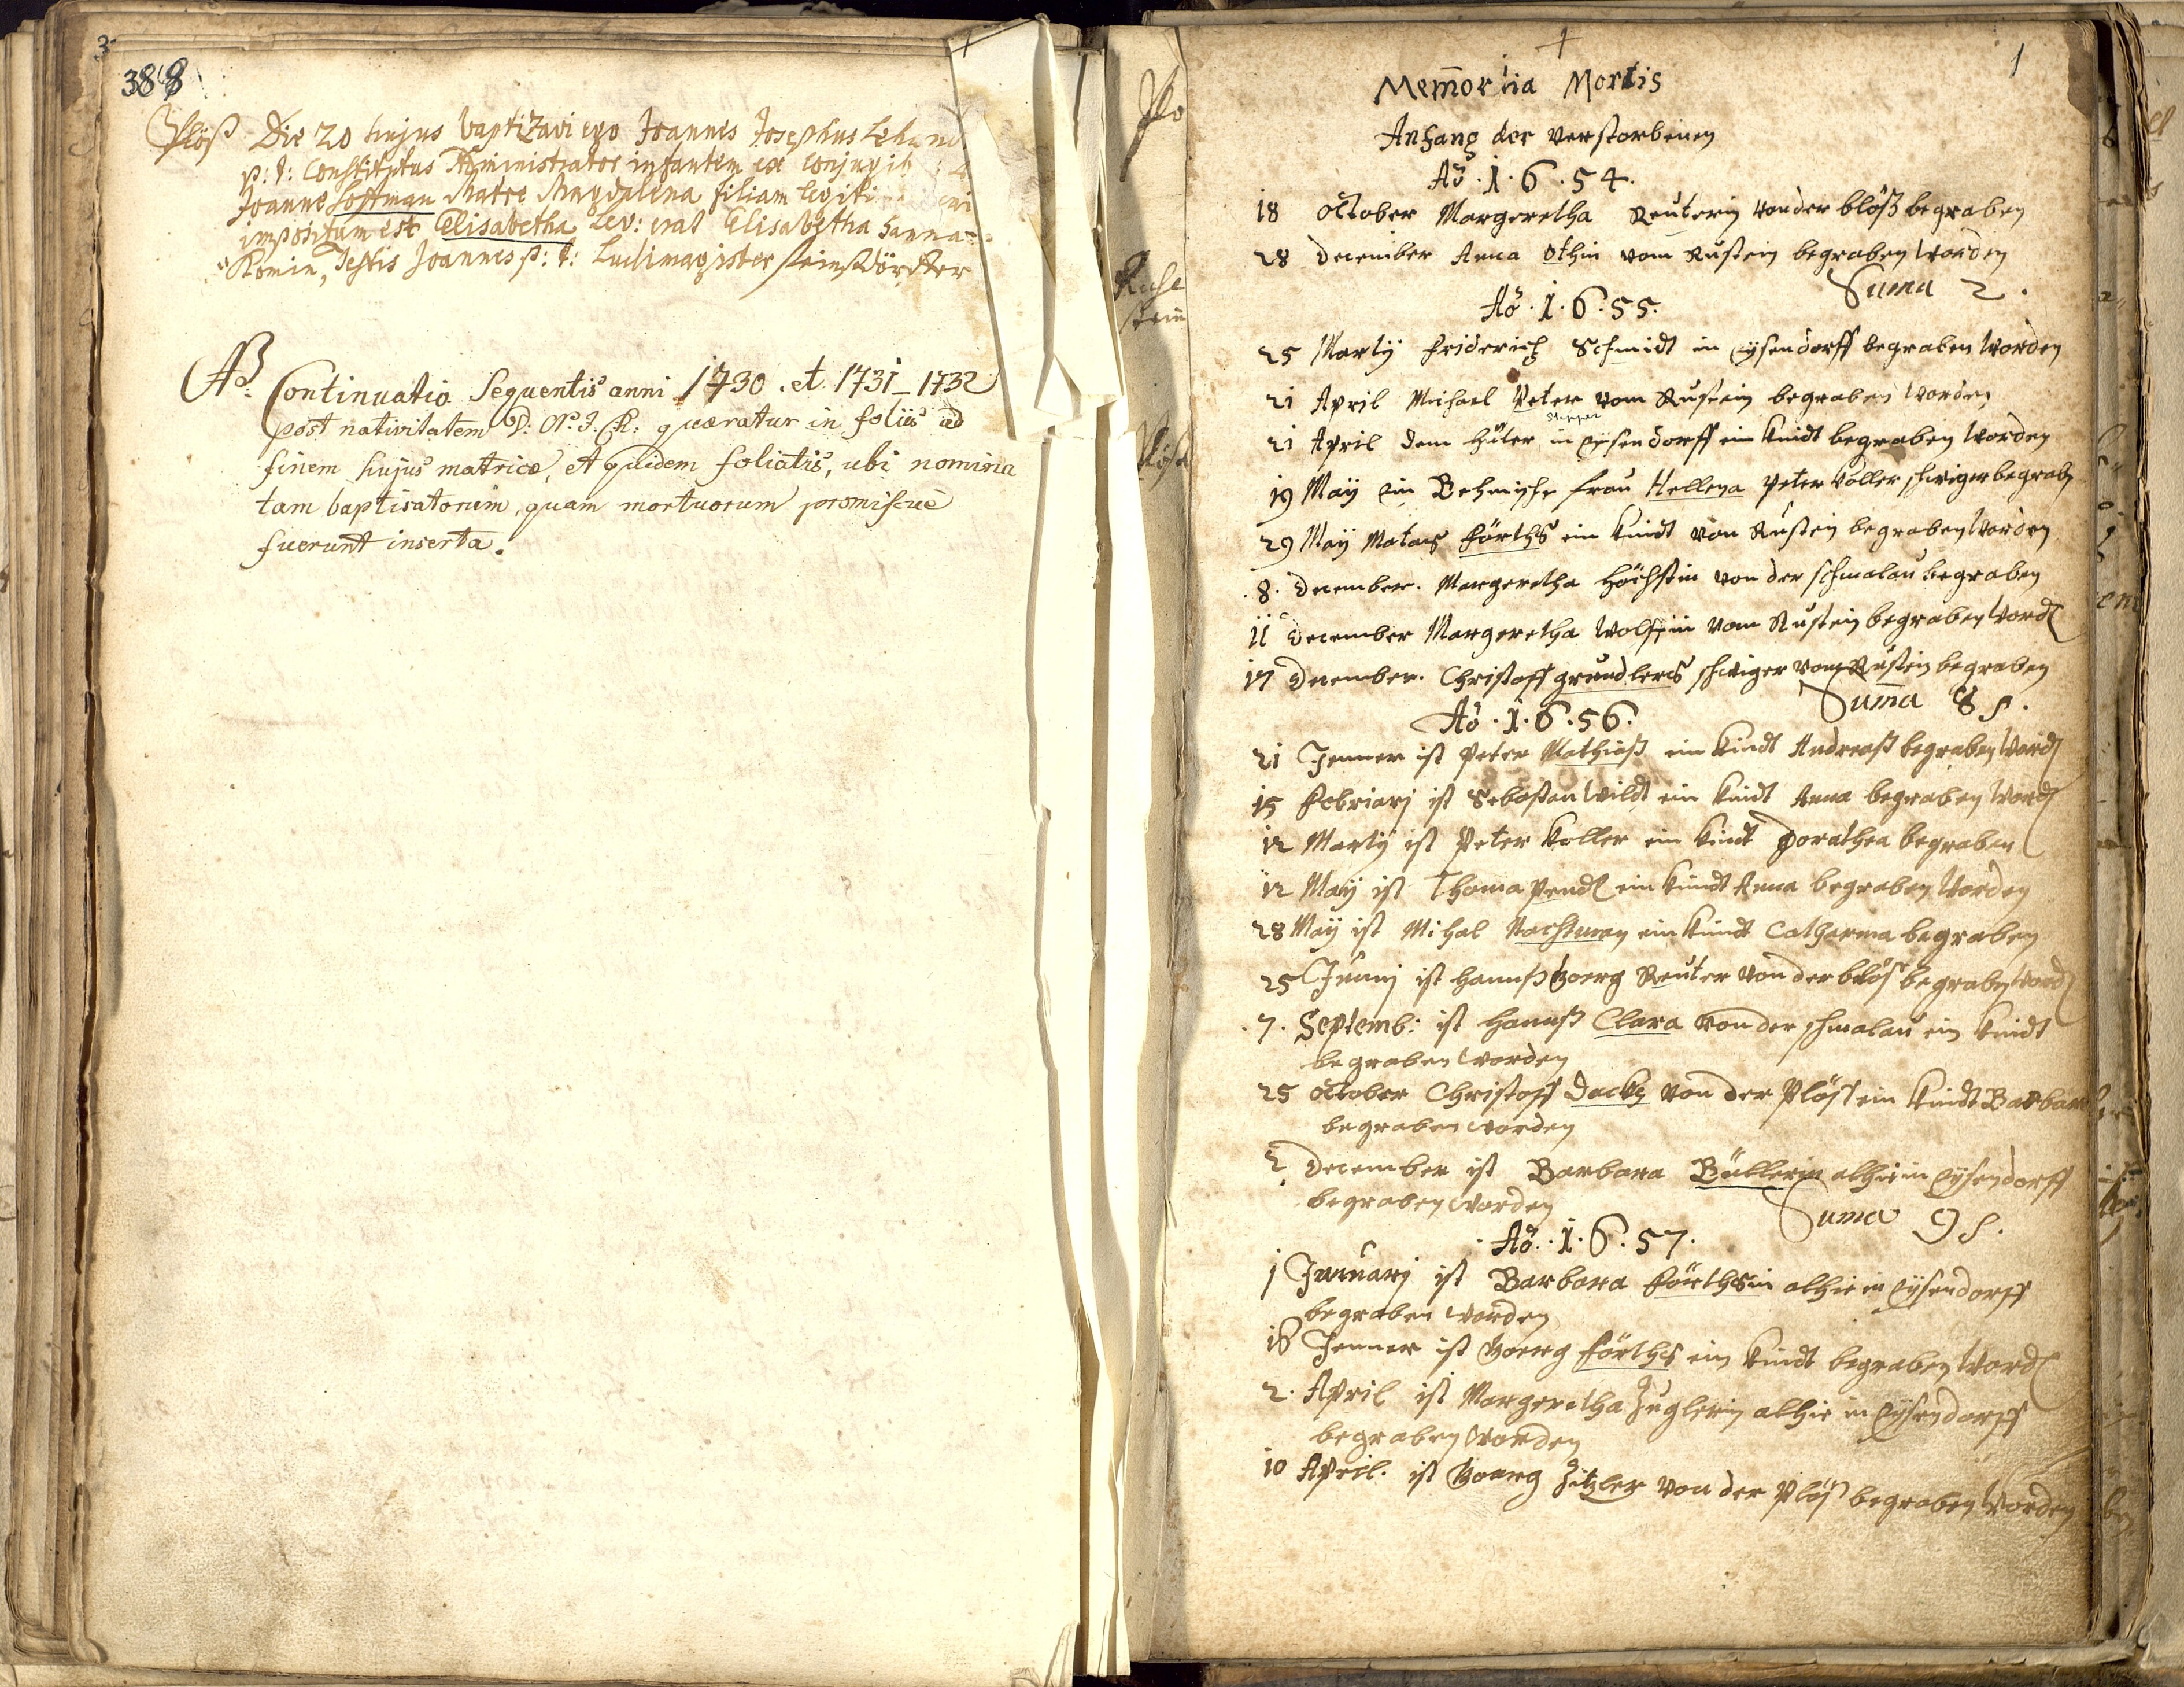 3
388
Plöß Die 20 hujus baptizavi ego Joannes Josephus
p: t: constitutus Administrator infantem ex conjugib
Joanne Hoffman Matre Magdalena filiam legiti
impositum est Elisabetha Lev: erat Elisabetha
Testis Joannes p: t: Ludimagister
NB. Continuatio Sequentis anni 1730. et. 1731_1732
post nativitatem D: N: J. Ch: quæratur in foliis ad
finem hujus matricæ, et quidem foliatis, ubi nomina
tam baptisatorum, quam mortuorum promiscuè
fuerunt inserta.
Ruse
stein
1
Memoria Mortis
Anfang der verstorbenen
Aõ. 1. 6. 54.
18 October Margeretha Reuterin von der blöß begraben
28 December Anna Othin vom Rustein begraben worden
Suma 2.
Aõ. 1. 6. 55.
25 Martij Friderich Schmidt in Eysendorff begraben worden
21 April Michael Peter vom Rustein begraben worden
21 April dem hüter in Eysendorff ein kindt begraben worden
19 Maij ein Behmische frau Hellena Peter Koller schwiger begrab
29 Maij Mataes Förths ein kindt von Rustein begraben worden
8. December. Margeretha Höchstin von der schmalau begraben
11 December Margeretha Wolffin vom Rustein begraben word
17 December. Christoff grundlers schwiger vom Rustein begraben
Suma 8 s.
Aõ. 1. 6. 56.
21 Jenner ist Peter Mathiaß ein kindt Andreaß begraben word
15 Februarj ist Sebastian Wildt ein kindt Anna begraben word
12 Martij ist Peter Koller ein kindt Dorathea begraben
12 Maij ist Thoma Pendl ein kindt Anna begraben worden
28 Maij ist Mihal Wachtman ein kindt Catharina begraben
25 Junij ist Hannß Goerg Reuter von der blöß begraben word
7. Septemb: ist Hannß Clara von der schmalau ein kindt
begraben worden
25 October Christoff Dackh von der Plöß ein kindt Barbara
begraben worden
2. December ist Barbara Büllerin alhie in Eysendorff
begraben worden
Suma 9 s.
Aõ. 1. 6. 57.
1 Januarj ist Barbara Förthsin alhie in Eysendorff
begraben worden
18 Jenner ist Goerg Förths ein kindt begraben word
2. April ist Margeretha Zuglerin alhie in Eysendorff
begraben worden
10 April. ist Goerg Zitzler von der Plöß begraben worden